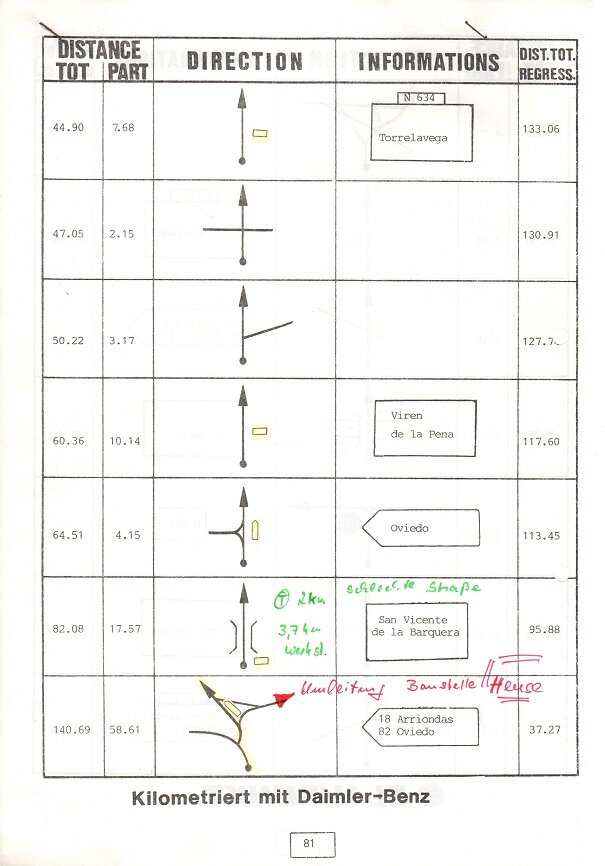 DISTANCE
TOT PART
DIRECTION
INFORMATIONS
DIST.TOT.
REGRESS.
44.90 7.68 N 634 133.06
Torrelavega
47.05 2.15 130.91
50.22 3.17 127.7
60.36 10.14 Viren 117.60
de la Pena
64.51 4.15 Oviedo 113.45
T 2km schlechte Straße
82.08 17.57 San Vicente 95.88
de la Barquera
3,7 km
Werkst.
Umleitung Baustelle // Heuse
140.69 58.61 18 Arriondas 37.27
82 Oviedo
Kilometriert mit Daimler-Benz
81